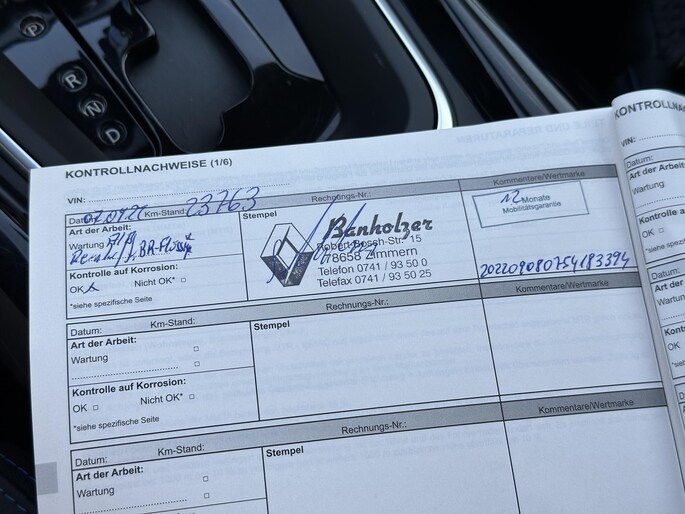 P
R
N
D
TEILE UND REPARATUREN
KONTROLLNACHWEISE (1/6)
VIN:
Datum: Km-Stand: 23763 Rechnungs-Nr.: Kommentare/Wertmarke
Art der Arbeit: Stempel
Wartung
BR-Flüss.
Kontrolle auf Korrosion:
OK Nicht OK* □
*siehe spezifische Seite
Banholzer
Robert-Bosch-Str. 15
78658 Zimmern
Telefon 0741 / 93 50 0
Telefax 0741 / 93 50 25
12 Monate
Mobilitätsgarantie
202209080754183394
Datum: Km-Stand: Rechnungs-Nr.: Kommentare/Wertmarke
Art der Arbeit: Stempel
Wartung □
□
Kontrolle auf Korrosion:
OK □ Nicht OK* □
*siehe spezifische Seite
Datum: Km-Stand: Rechnungs-Nr.: Kommentare/Wertmarke
Art der Arbeit: Stempel
Wartung □
□
VIN:
Datum:
Art der Arbeit
Wartung
OK □
Datum:
Art der